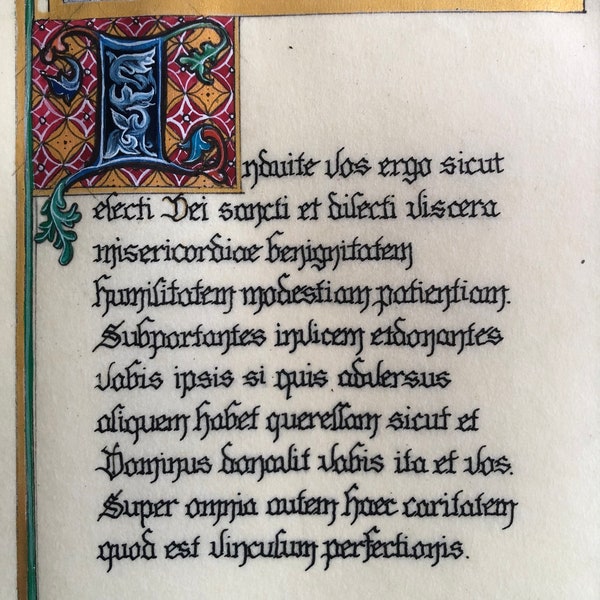 Induite vos ergo sicut
electi Dei sancti et dilecti viscera
misericordiae benignitatem
humilitatem modestiam patientiam.
Subportantes invicem etdonantes
vobis ipsis si quis adversus
aliquem habet querellam sicut et
Dominus donavit vobis ita et vos.
Super omnia autem haec caritatem
quod est vinculum perfectionis.